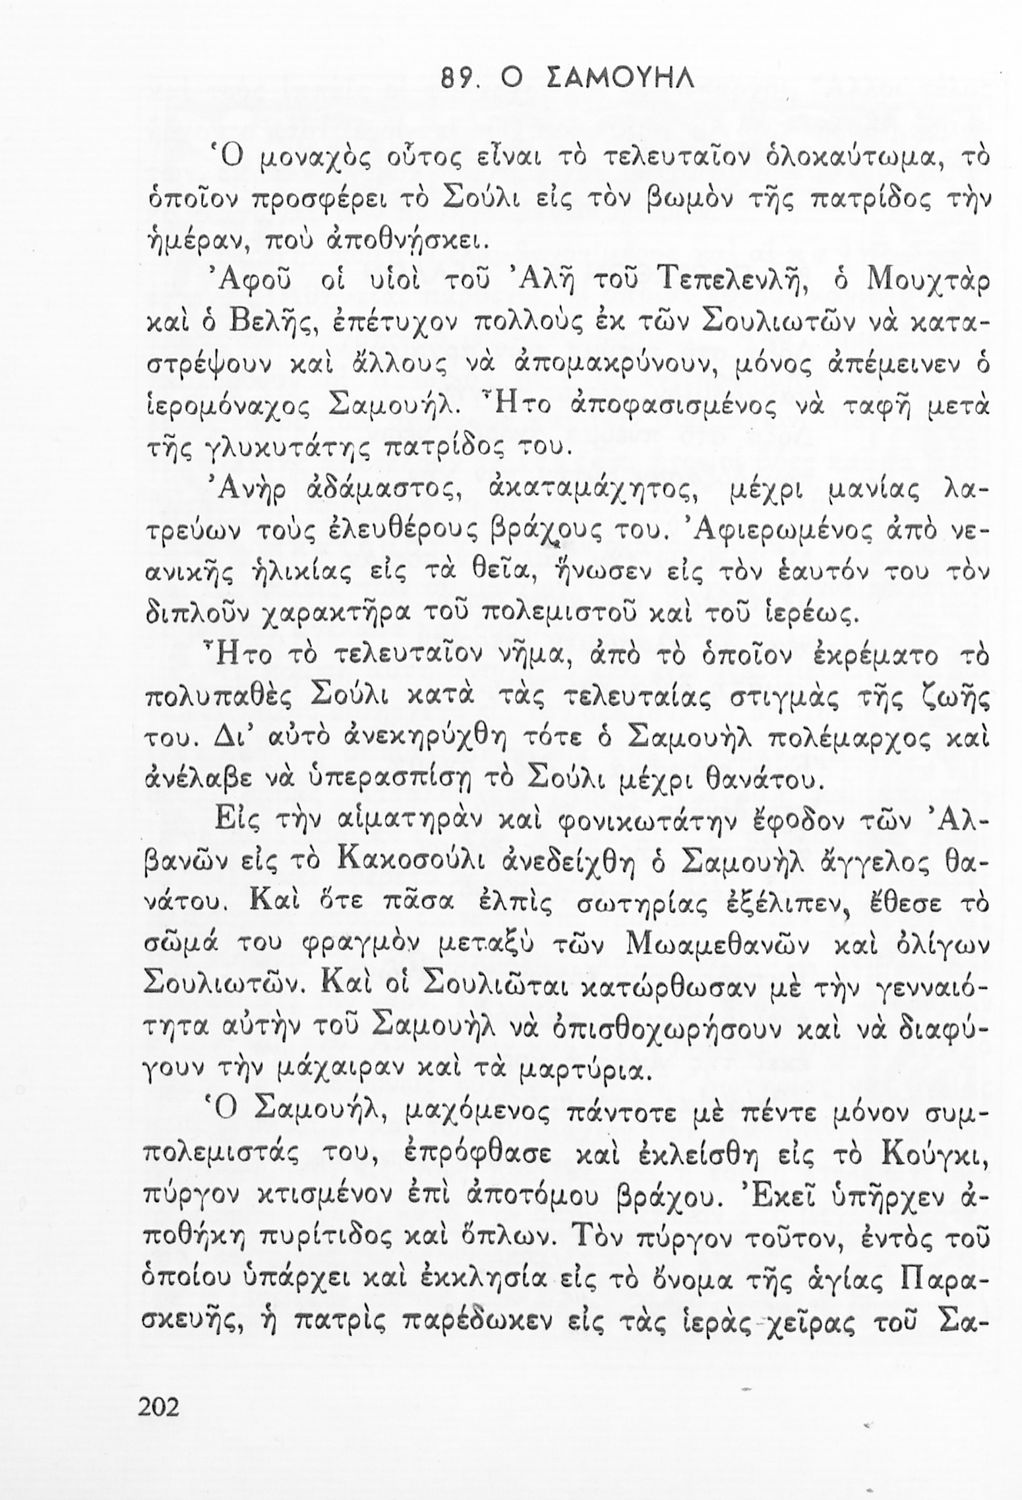 89. Ο ΣΑΜΟΥΗΛ
Ὁ μοναχὸς οὗτος εἶναι τὸ τελευταῖον ὁλοκαύτωμα, τὸ
ὁποῖον προσφέρει τὸ Σούλι εἰς τὸν βωμὸν τῆς πατρίδος τὴν
ἡμέραν, ποὺ ἀποθνήσκει.
Ἀφοῦ οἱ υἱοὶ τοῦ Ἀλῆ τοῦ Τεπελενλῆ, ὁ Μουχτὰρ
καὶ ὁ Βελῆς, ἐπέτυχον πολλοὺς ἐκ τῶν Σουλιωτῶν νὰ κατα-
στρέψουν καὶ ἄλλους νὰ ἀπομακρύνουν, μόνος ἀπέμεινεν ὁ
ἱερομόναχος Σαμουήλ. Ἦτο ἀποφασισμένος νὰ ταφῆ μετὰ
τῆς γλυκυτάτης πατρίδος του.
Ἀνὴρ ἀδάμαστος, ἀκαταμάχητος, μέχρι μανίας λα-
τρεύων τοὺς ἐλευθέρους βράχους του. Ἀφιερωμένος ἀπὸ νε-
ανικῆς ἡλικίας εἰς τὰ θεῖα, ἥνωσεν εἰς τὸν ἑαυτόν του τὸν
διπλοῦν χαρακτῆρα τοῦ πολεμιστοῦ καὶ τοῦ ἱερέως.
Ἦτο τὸ τελευταῖον νῆμα, ἀπὸ τὸ ὁποῖον ἐκρέματο τὸ
πολυπαθὲς Σούλι κατὰ τὰς τελευταίας στιγμὰς τῆς ζωῆς
του. Δι’ αὐτὸ ἀνεκηρύχθη τότε ὁ Σαμουὴλ πολέμαρχος καὶ
ἀνέλαβε νὰ ὑπερασπίσῃ τὸ Σούλι μέχρι θανάτου.
Εἰς τὴν αἱματηρὰν καὶ φονικωτάτην ἔφοδον τῶν Ἀλ-
βανῶν εἰς τὸ Κακοσούλι ἀνεδείχθη ὁ Σαμουὴλ ἄγγελος θα-
νάτου. Καὶ ὅτε πᾶσα ἐλπὶς σωτηρίας ἐξέλιπεν, ἔθεσε τὸ
σῶμά του φραγμὸν μεταξὺ τῶν Μωαμεθανῶν καὶ ὀλίγων
Σουλιωτῶν. Καὶ οἱ Σουλιῶται κατώρθωσαν μὲ τὴν γενναιό-
τητα αὐτὴν τοῦ Σαμουὴλ νὰ ὀπισθοχωρήσουν καὶ νὰ διαφύ-
γουν τὴν μάχαιραν καὶ τὰ μαρτύρια.
Ὁ Σαμουήλ, μαχόμενος πάντοτε μὲ πέντε μόνον συμ-
πολεμιστάς του, ἐπρόφθασε καὶ ἐκλείσθη εἰς τὸ Κούγκι,
πύργον κτισμένον ἐπὶ ἀποτόμου βράχου. Ἐκεῖ ὑπῆρχεν ἀ-
ποθήκη πυρίτιδος καὶ ὅπλων. Τὸν πύργον τοῦτον, ἐντὸς τοῦ
ὁποίου ὑπάρχει καὶ ἐκκλησία εἰς τὸ ὄνομα τῆς ἁγίας Παρα-
σκευῆς, ἡ πατρὶς παρέδωκεν εἰς τὰς ἱερὰς χεῖρας τοῦ Σα-
202